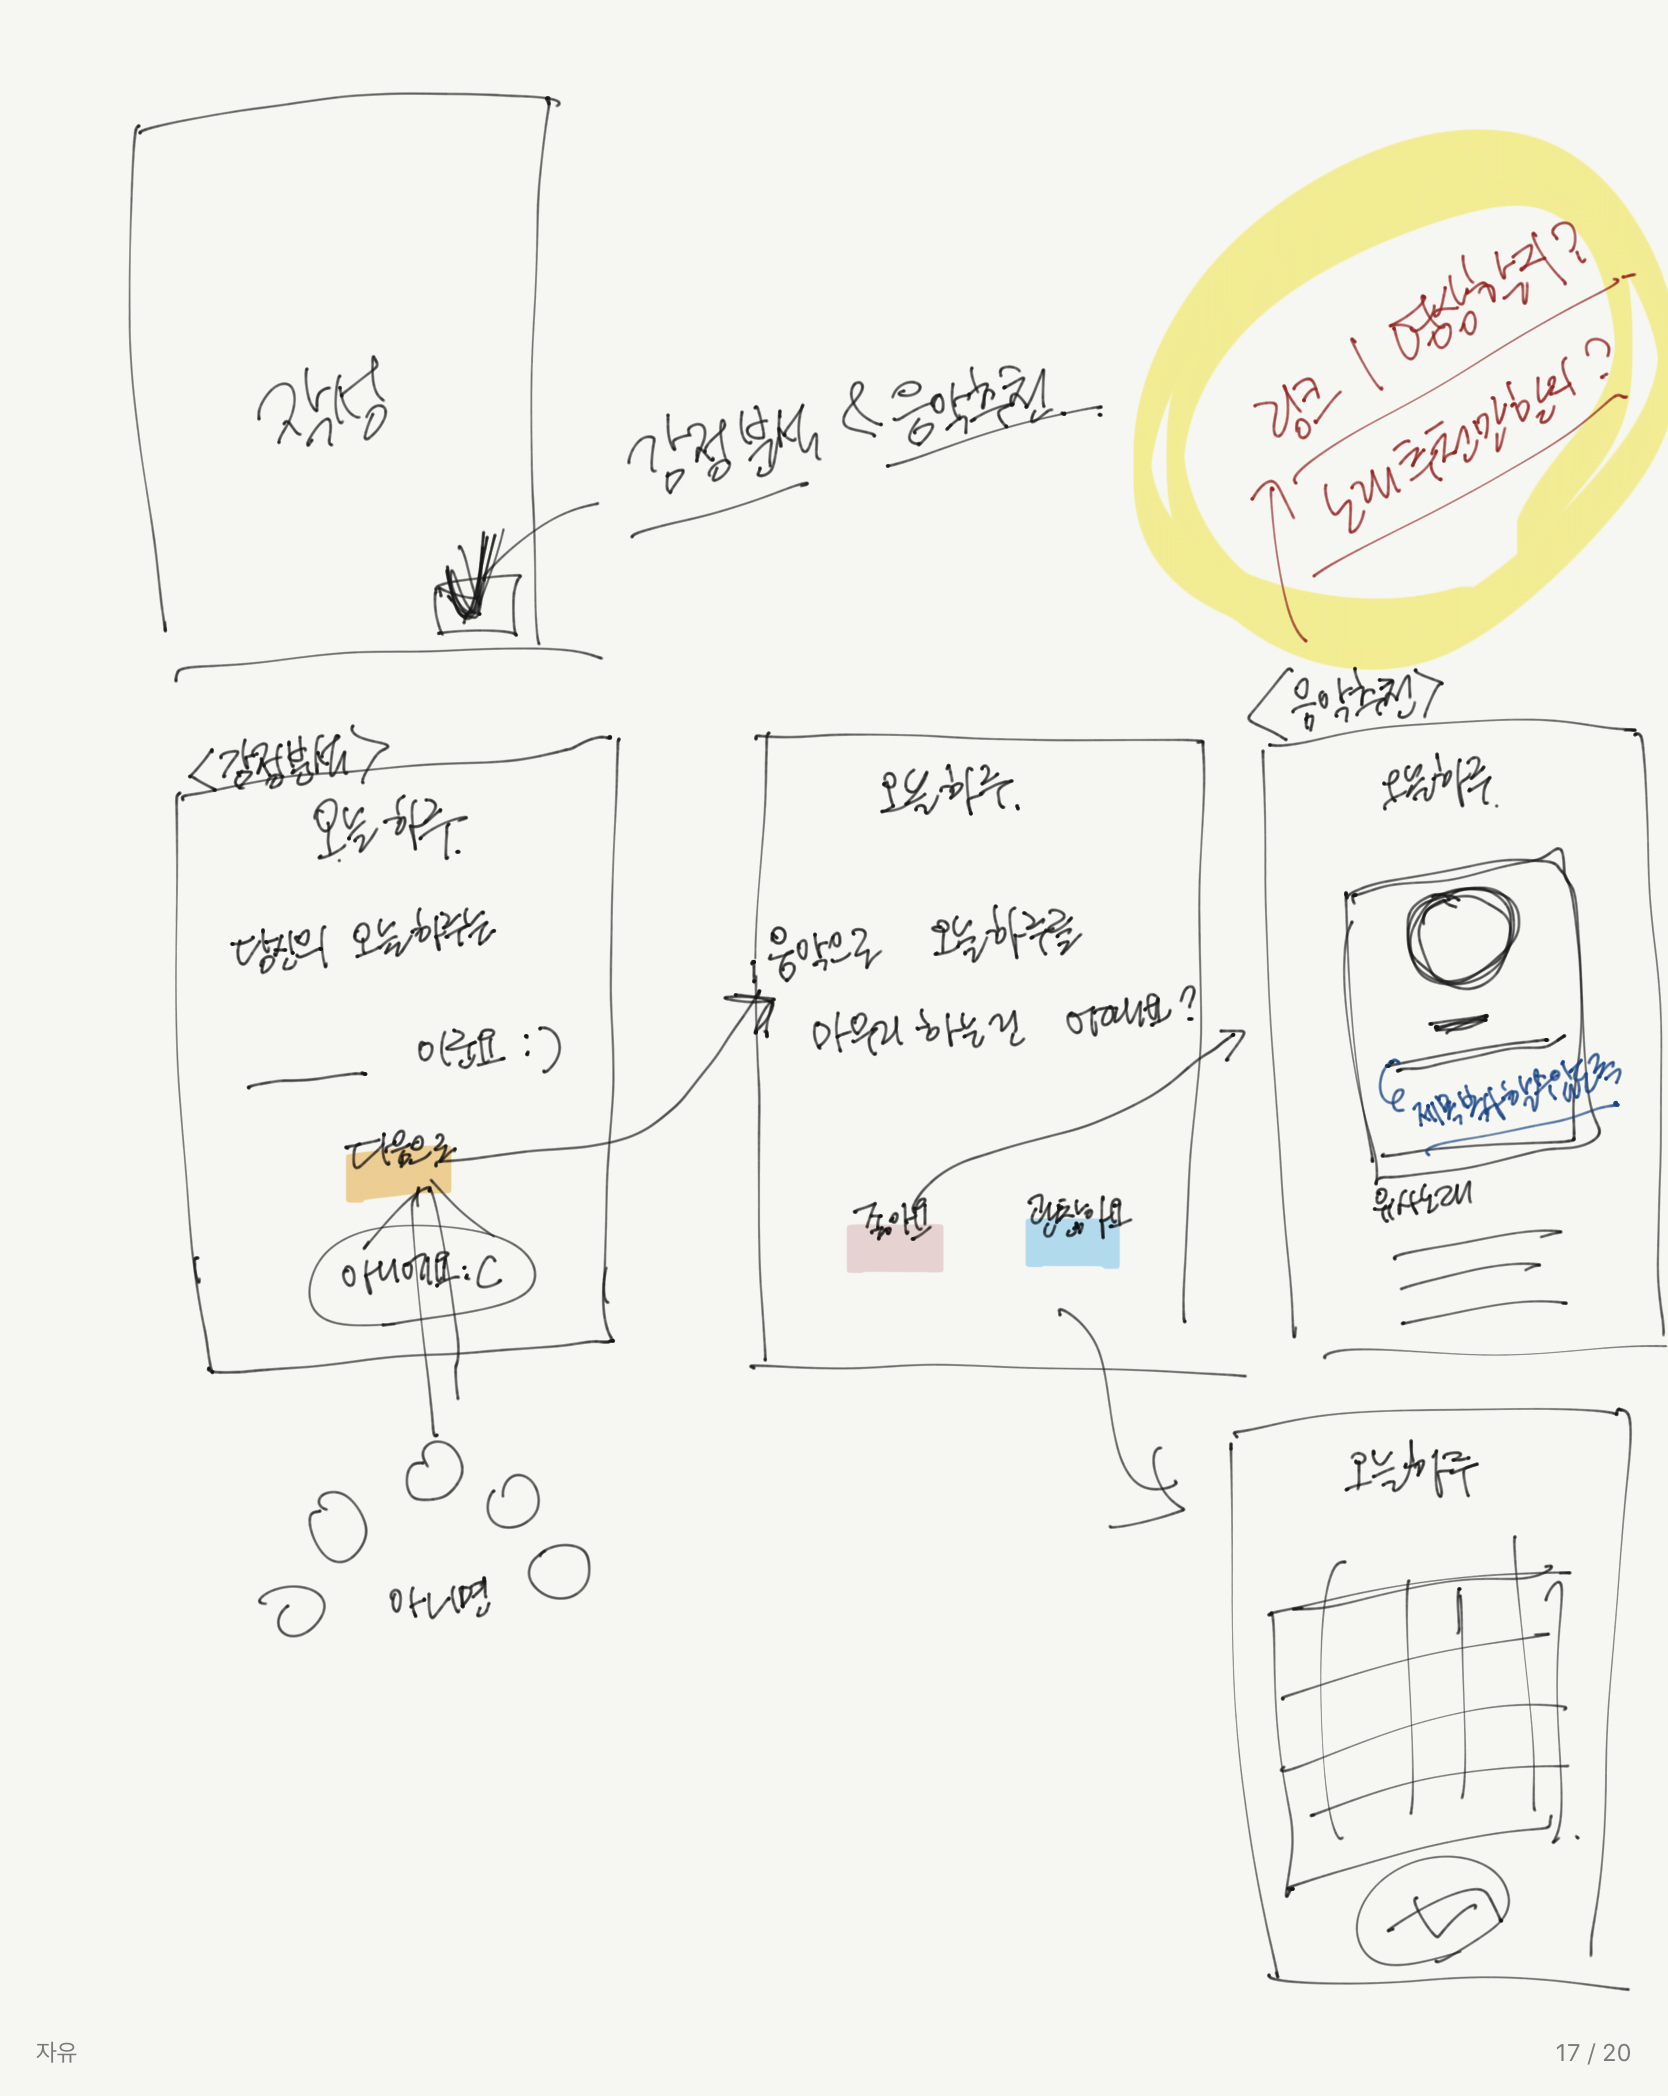 작성
감정분석 & 음악추천
링크 / 영상클릭?
노래추천만 할뿐?
<감정분석>
오늘 하루.
당신의 오늘하루는
이군요 :)
다음으로
아니에요 :(
아니면
오늘하루.
음악으로 오늘하루를
마무리 하는 건 어때요?
좋아요
괜찮아요
<음악추천>
오늘하루.
제목 복사 할 수 있도록
유사노래
오늘하루
자유
17 / 20